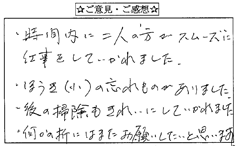 ☆ご意見・ご感想☆
・時間内に二人の方がスムーズに
仕事をして いかれました。
・ほうき(小)の忘れものがありました。
・後の掃除もきれいにしていかれました
・何かの折にはまたお願いしたいと思います